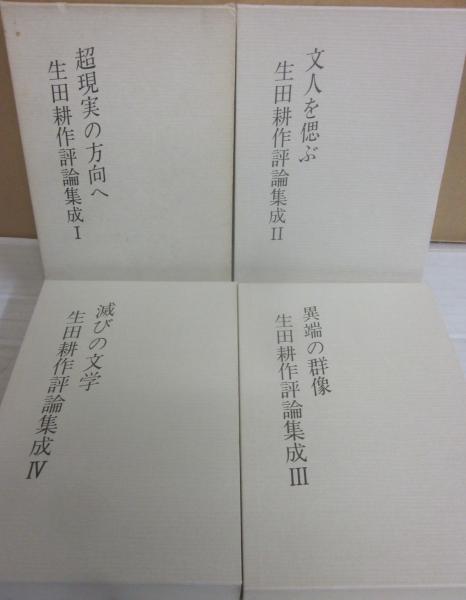 超現実の方向へ
生田耕作評論集成Ⅰ
文人を偲ぶ
生田耕作評論集成Ⅱ
滅びの文学
生田耕作評論集成Ⅳ
異端の群像
生田耕作評論集成Ⅲ